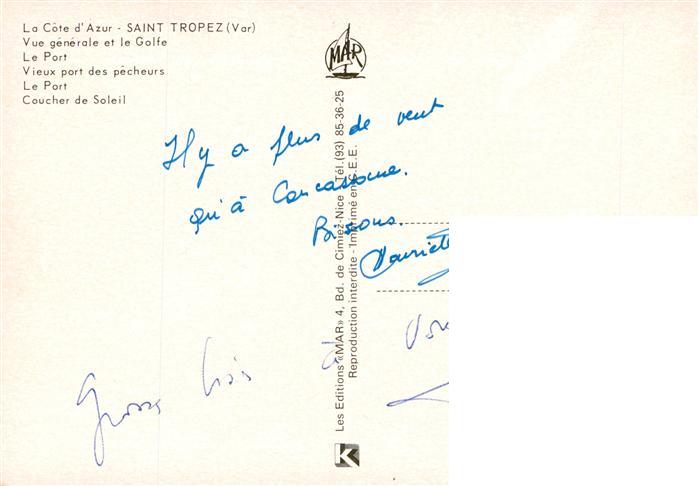 La Côte d'Azur - SAINT TROPEZ (Var)
Vue générale et le Golfe
Le Port
Vieux port des pêcheurs
Le Port
Coucher de Soleil
MAR
Il y a plus de vent
qu'à Carcassonne.
Bisous.
Les Editions «MAR» 4, Bd. de Cimiez-Nice - Tél.(93) 85-36-25
Reproduction interdite - Imprimé en C.E.E.
à
K